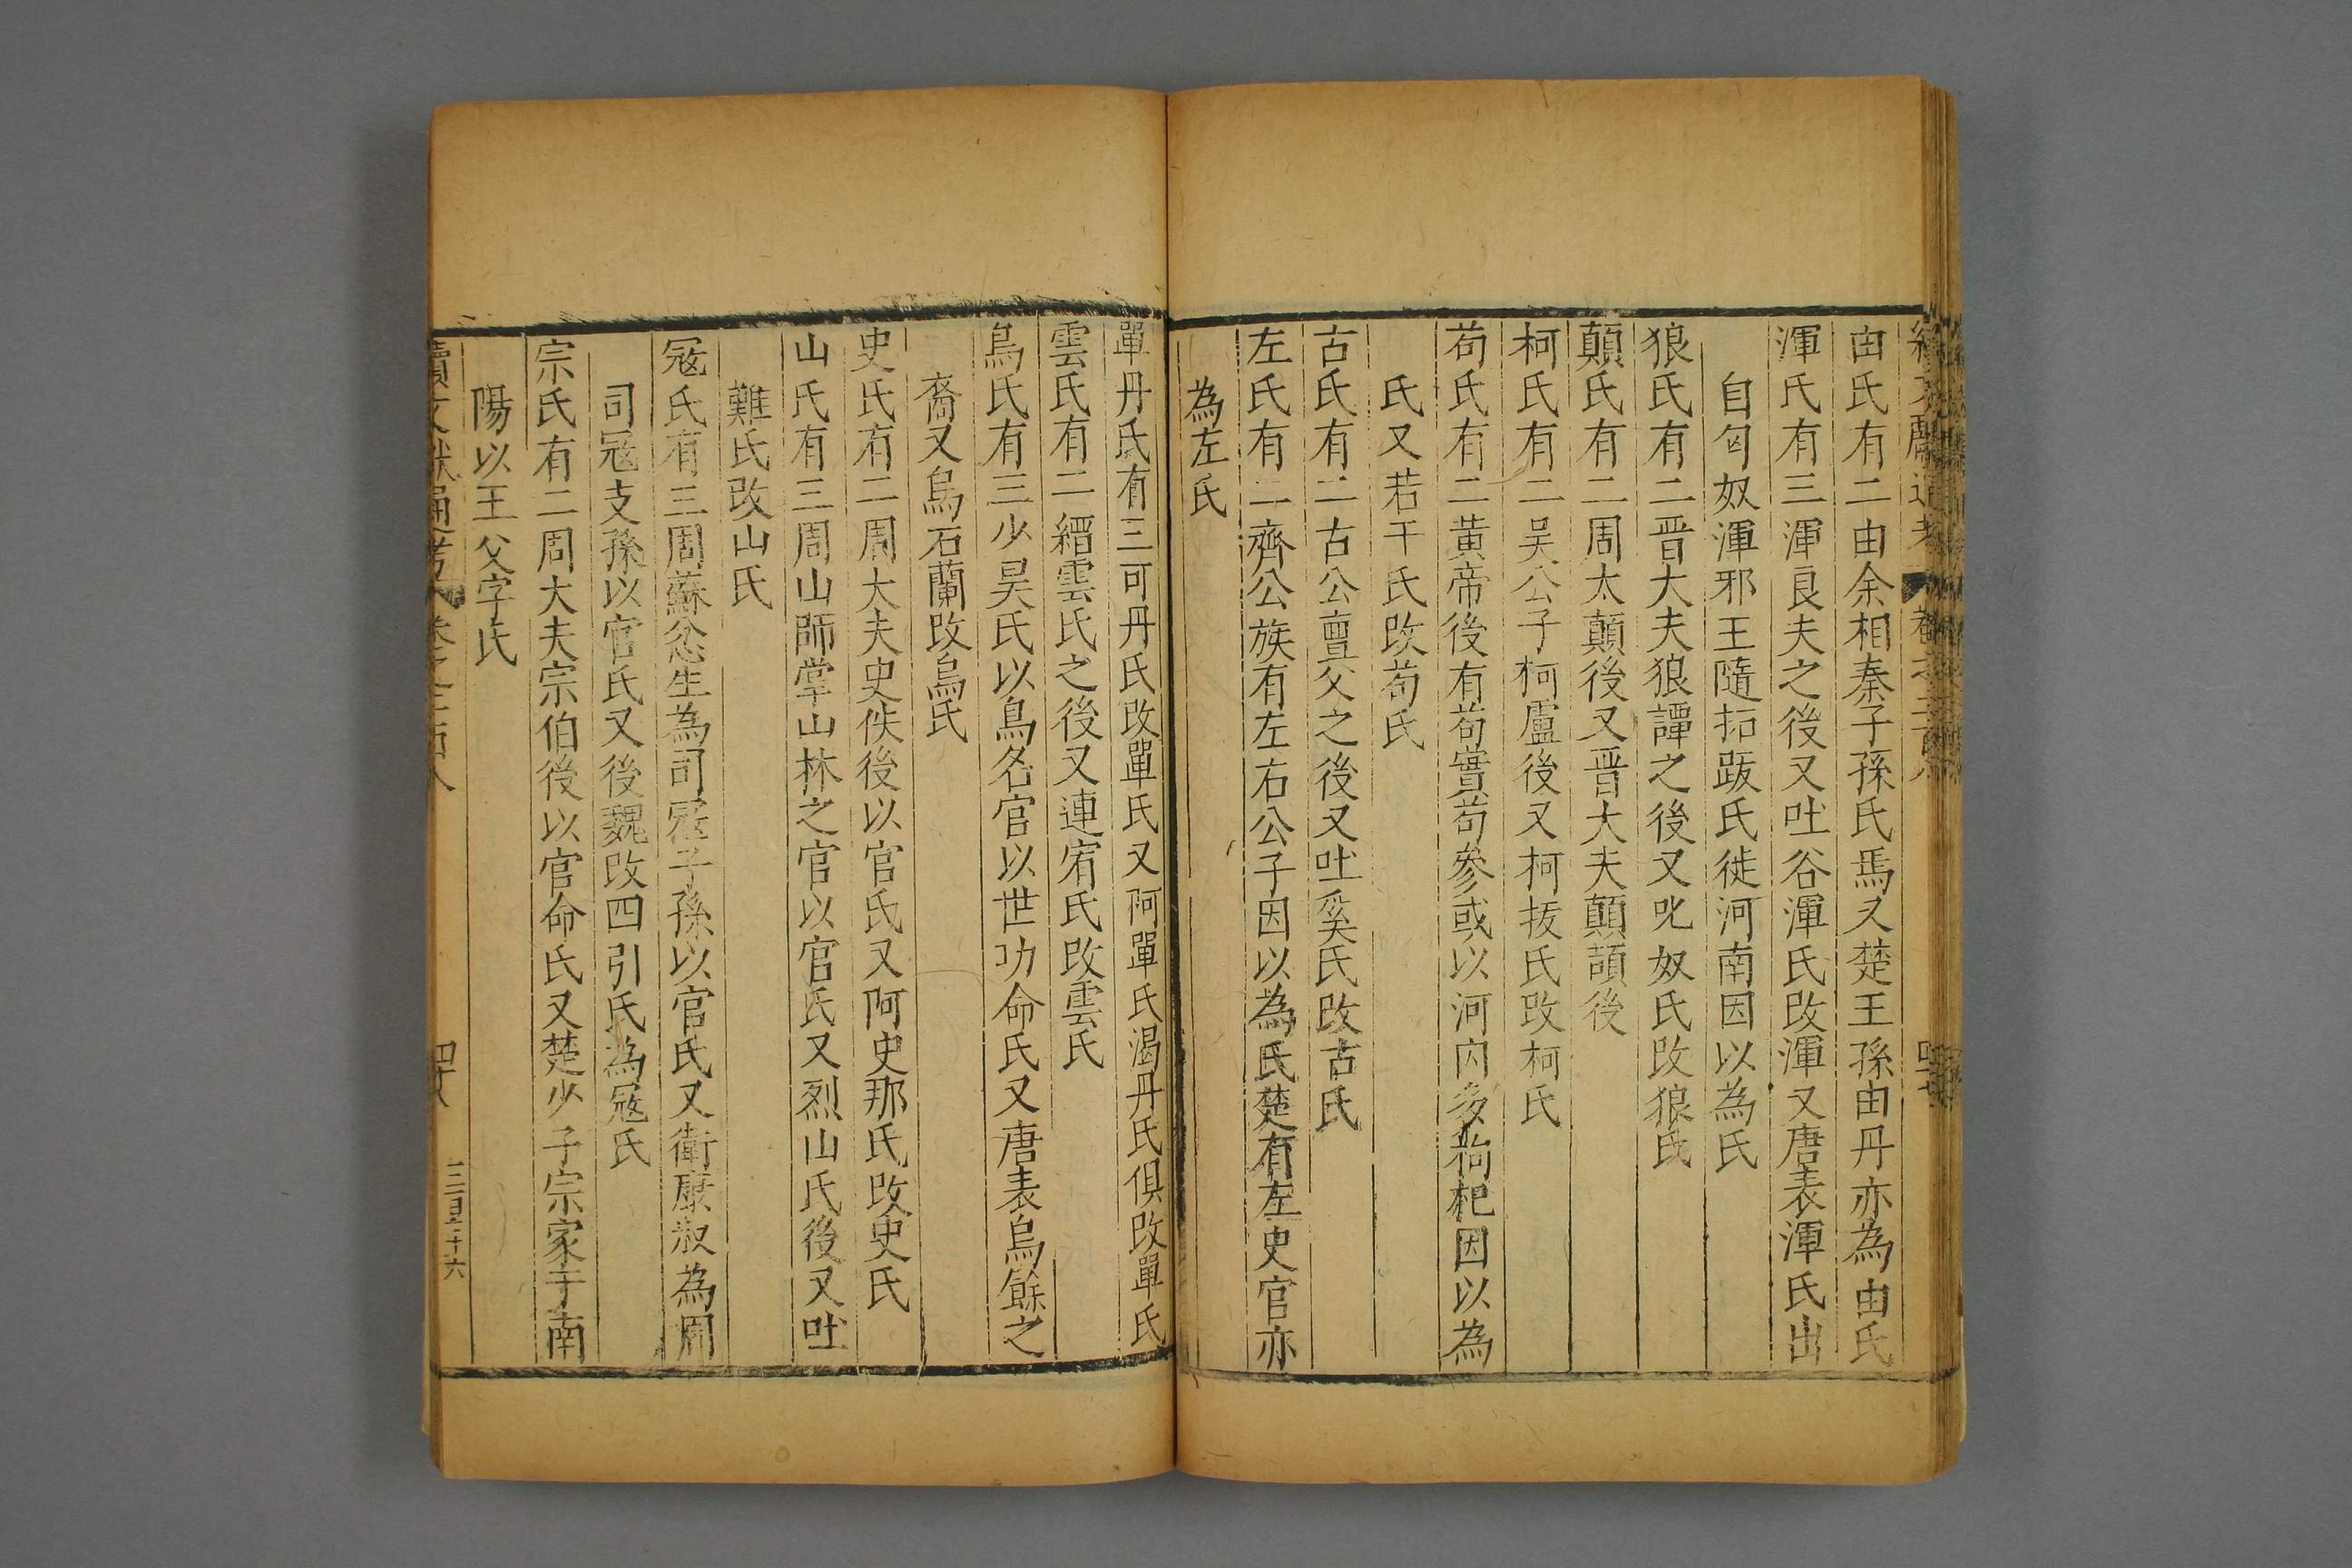 由氏有二由余相秦子孫氏焉又楚王孫由丹亦為由氏
渾氏有三渾良夫之後又吐谷渾氏改渾又唐表渾氏出
自匈奴渾邪王隨拓跋氏徙河南因以為氏
狼氏有二晉大夫狼譚之後又叱奴氏改狼氏
顛氏有二周太顛後又晉大夫顛頡後
柯氏有二吴公子柯盧後又柯拔氏改柯氏
苟氏有二黃帝後有苟實苟參或以河内多枸杞因以為
氏又若干氏改苟氏
古氏有二古公亶父之後又吐奚氏改古氏
左氏有二齊公族有左右公子因以為氏楚有左史官亦
為左氏
單丹氏有三可丹氏改單氏又阿單氏渴丹氏俱改單氏
雲氏有二縉雲氏之後又連宥氏改雲氏
烏氏有三少昊氏以鳥名官以世功命氏又唐表烏餘之
裔又烏石蘭改烏氏
史氏有二周大夫史佚後以官氏又阿史那氏改史氏
山氏有三周山師掌山林之官以官氏又烈山氏後又吐
難氏改山氏
冦氏有三周蘇忿生為司冦子孫以官氏又衛康叔為周
司冦支孫以官氏又後魏改四引氏為冦氏
宗氏有二周大夫宗伯後以官命氏又楚少子宗家于南
陽以王父字氏
續文獻通考
四十八
三百二十六